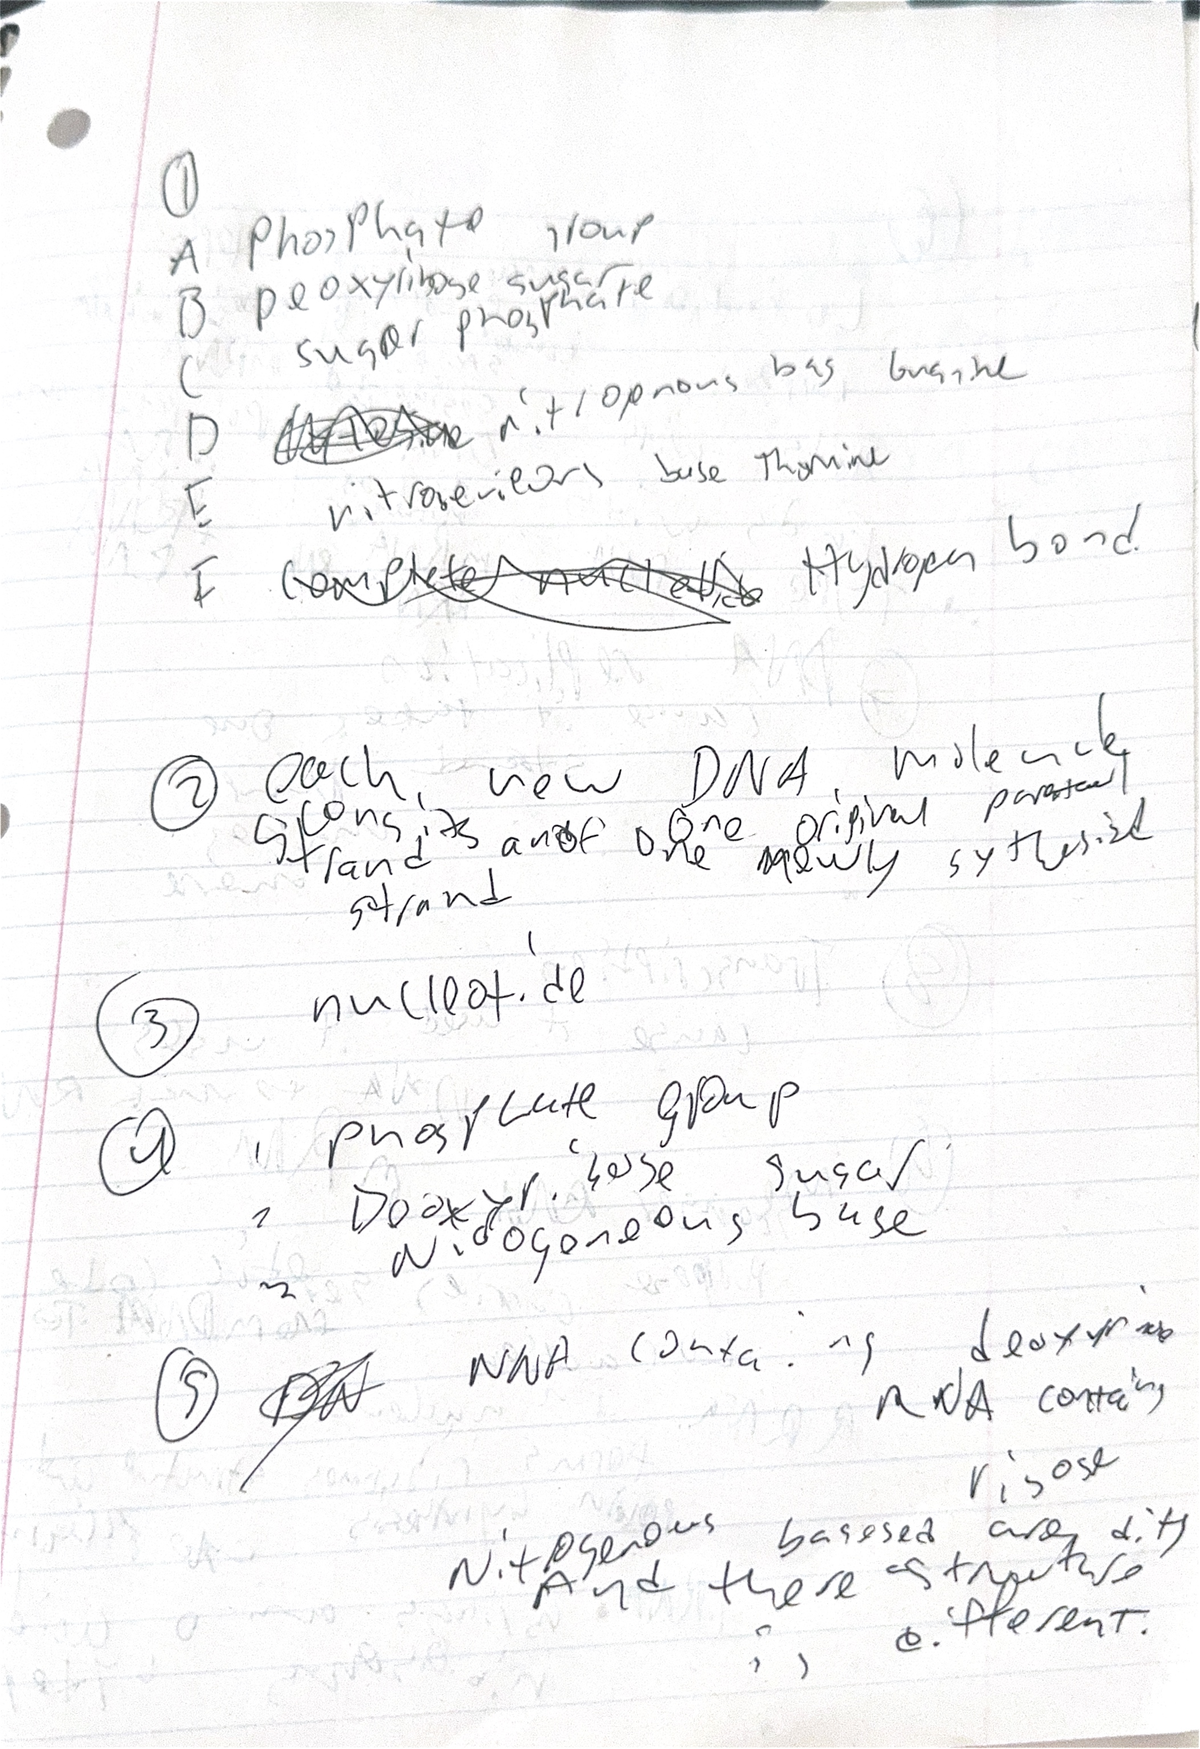 ①
A phosphate group
B Deoxyribose sugar
C sugar phosphate
D nitrogenous bas Guanine
E base Thymine
F Hydrogen bond
② each new DNA molecule
consists of one original parental
strand and one newly synthesized
strand
③ nucleotide
④ 1 phosphate group
2 Deoxyribose sugar
3 Nitrogeneous base
⑤ contains
RNA contains
ribose
Nitrogenous based are
And there structure
is different.